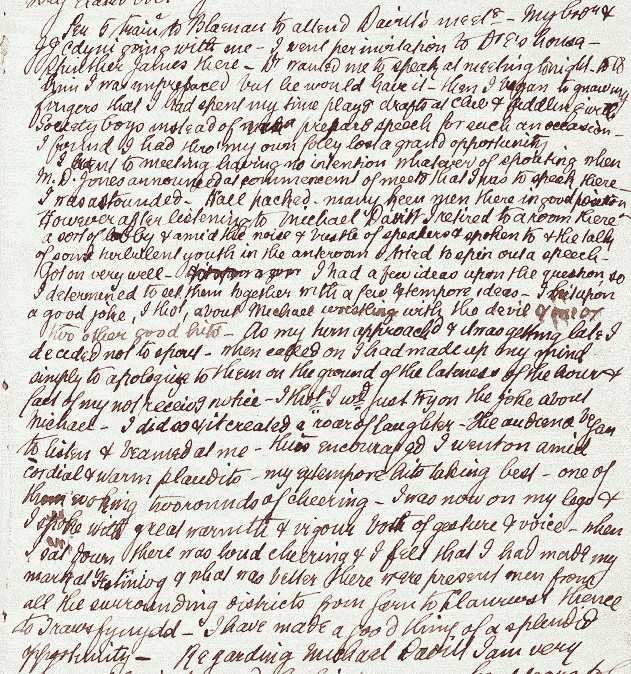 Per 5 train to Blaenau to attend Davitt's meetg - My bror &
going with me - I went per invitation to Dr E's house -
James there - Dr wanted me to speak at meeting tonight - told
him I was unprepared but he would have it - then I began to gnaw my
fingers that I had spent my time playg drafts at & peddling with
Society boys instead of preparg speech for such an occasion -
I found I had thro my own folly lost a grand opportunity
I went to meeting having no intention whatever of spouting when
M. D. Jones announced at commencemt of meetg that I was to speak there -
I was astounded - Hall packed - many keen men there in good position
However after listening to Michael Davitt I retired to a room there
a sort of lobby & amid the noise & bustle of speakers & spoken to & the tally
of some turbulent youth in the anteroom I tried to spin out a speech -
Got on very well - I had a few ideas upon the question so
I determined to set them together with a few extempore ideas - I hit upon
a good joke, I thot, about Michael wrestling with the devil & one or
two other good hits - As my turn approachd & it was getting late I
decided not to spout - when called on I had made up my mind
simply to apologise to them on the ground of the lateness of the hour &
fact of my not receivg notice - I thot I wd just try on the joke about
Michael - I did so & it created a "roar of laughter - the audience began
to listen & beamed at me - thus encouraged I went on amid
cordial & warm plaudits - my extempore hits taking best - one of
them evoking two rounds of cheering - I was now on my legs &
I spoke with great warmth & vigour both of gesture & voice - when
I sat down there was loud cheering & I felt that I had made my
mark at Festiniog & what was better there were present men from
all the surrounding districts from Corn to Llanrwst & thence
to Trawsfynydd - I have made a good thing of a splendid
opportunity - Regarding Michael Davitt I am very